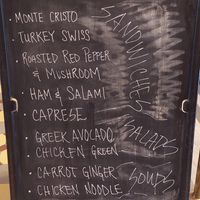 • MONTE CRISTO
• TURKEY SWISS
• ROASTED RED PEPPER
& MUSHROOM
• HAM & SALAMI
• CAPRESE
SANDWICHES
• GREEK AVOCADO
• CHICKEN GREEN
SALADS
• CARROT GINGER
• CHICKEN NOODLE
SOUPS